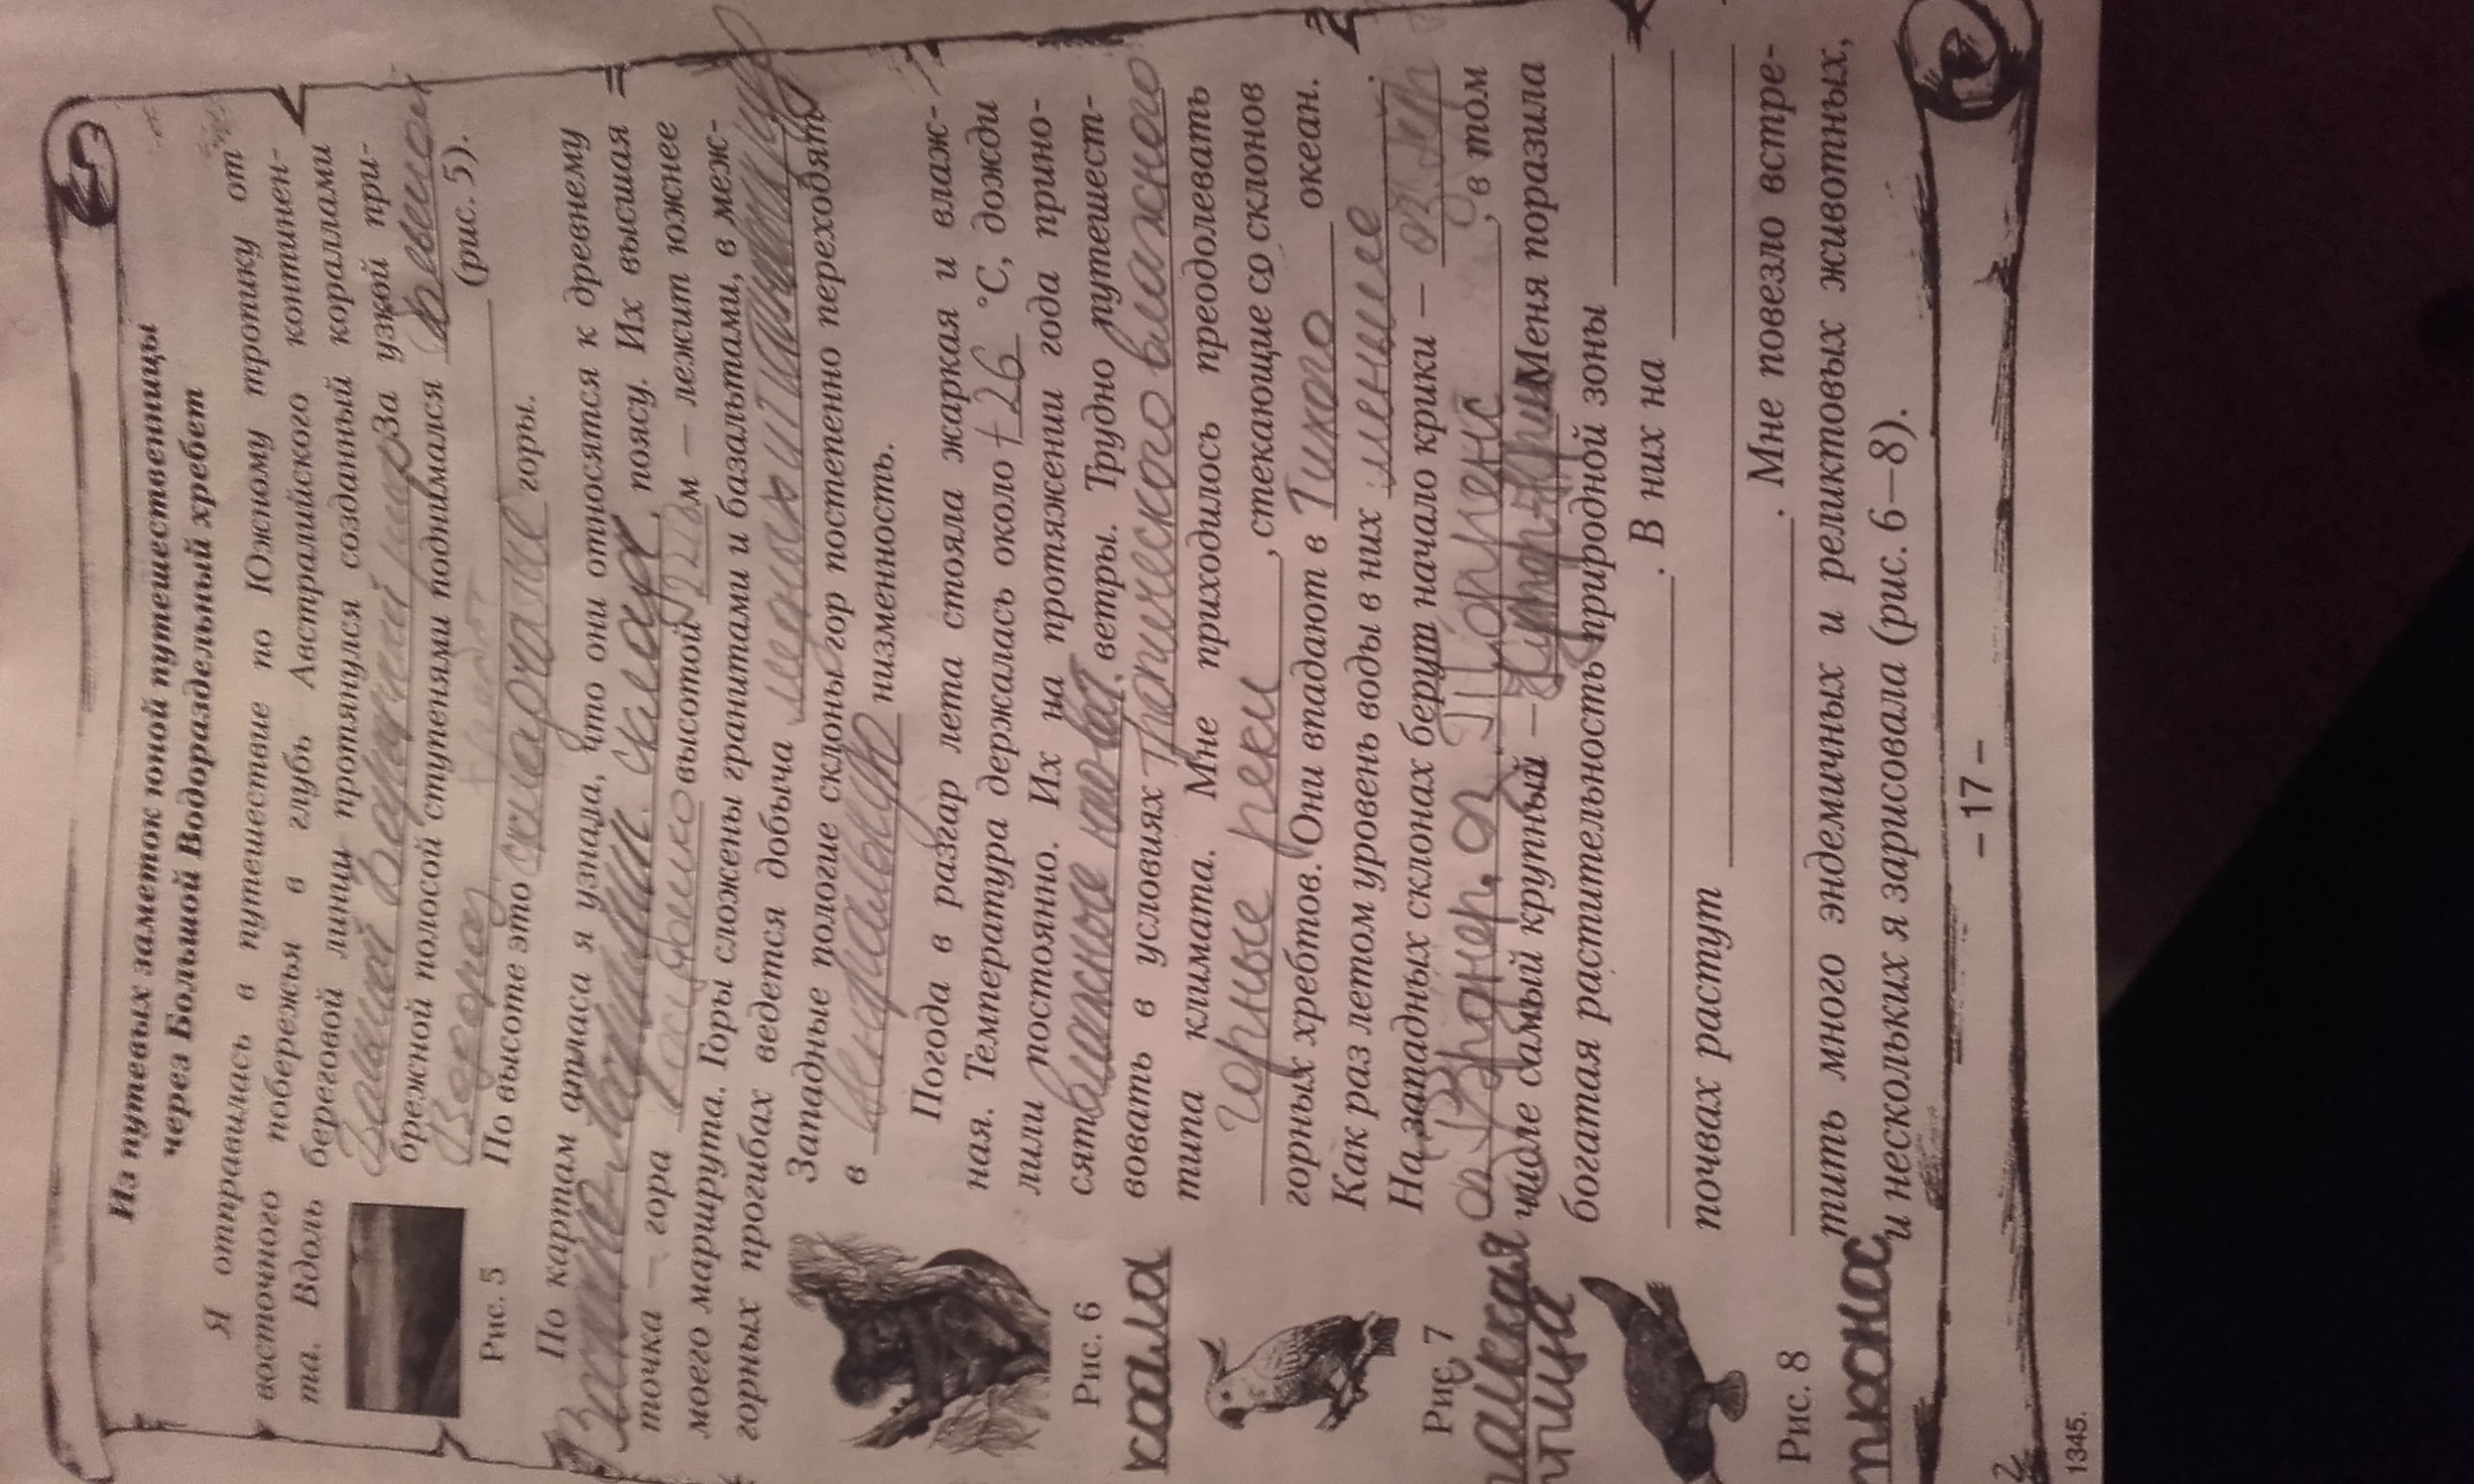 Из путевых заметок юной путешественницы
через Большой Водораздельный хребет
Я отправилась в путешествие по Южному тропику от
восточного побережья в глубь Австралийского континен-
та. Вдоль береговой линии протянулся созданный кораллами
За узкой при-
брежной полосой ступенями поднимался
(рис. 5).
По высоте это горы.
Рис. 5
По картам атласа я узнала, что они относятся к древнему
поясу. Их высшая
точка – гора высотой м – лежит южнее
моего маршрута. Горы сложены гранитами и базальтами, в меж-
горных прогибах ведется добыча
Западные пологие склоны гор постепенно переходят
в низменность.
Погода в разгар лета стояла жаркая и влаж-
ная. Температура держалась около +26 °С, дожди
лили постоянно. Их на протяжении года прино-
сят влажные ветры. Трудно путешест-
вовать в условиях тропического влажного
типа климата. Мне приходилось преодолевать
горные реки, стекающие со склонов
горных хребтов. Они впадают в Тихого океан.
Как раз летом уровень воды в них меньше.
На западных склонах берут начало крики –
, в том
числе самый крупный – Меня поразила
богатая растительность природной зоны
. В них на
почвах растут
. Мне повезло встре-
тить много эндемичных и реликтовых животных,
и нескольких я зарисовала (рис. 6–8).
Рис. 6
коала
Рис. 7
птица
Рис. 8
– 17 –
1345.